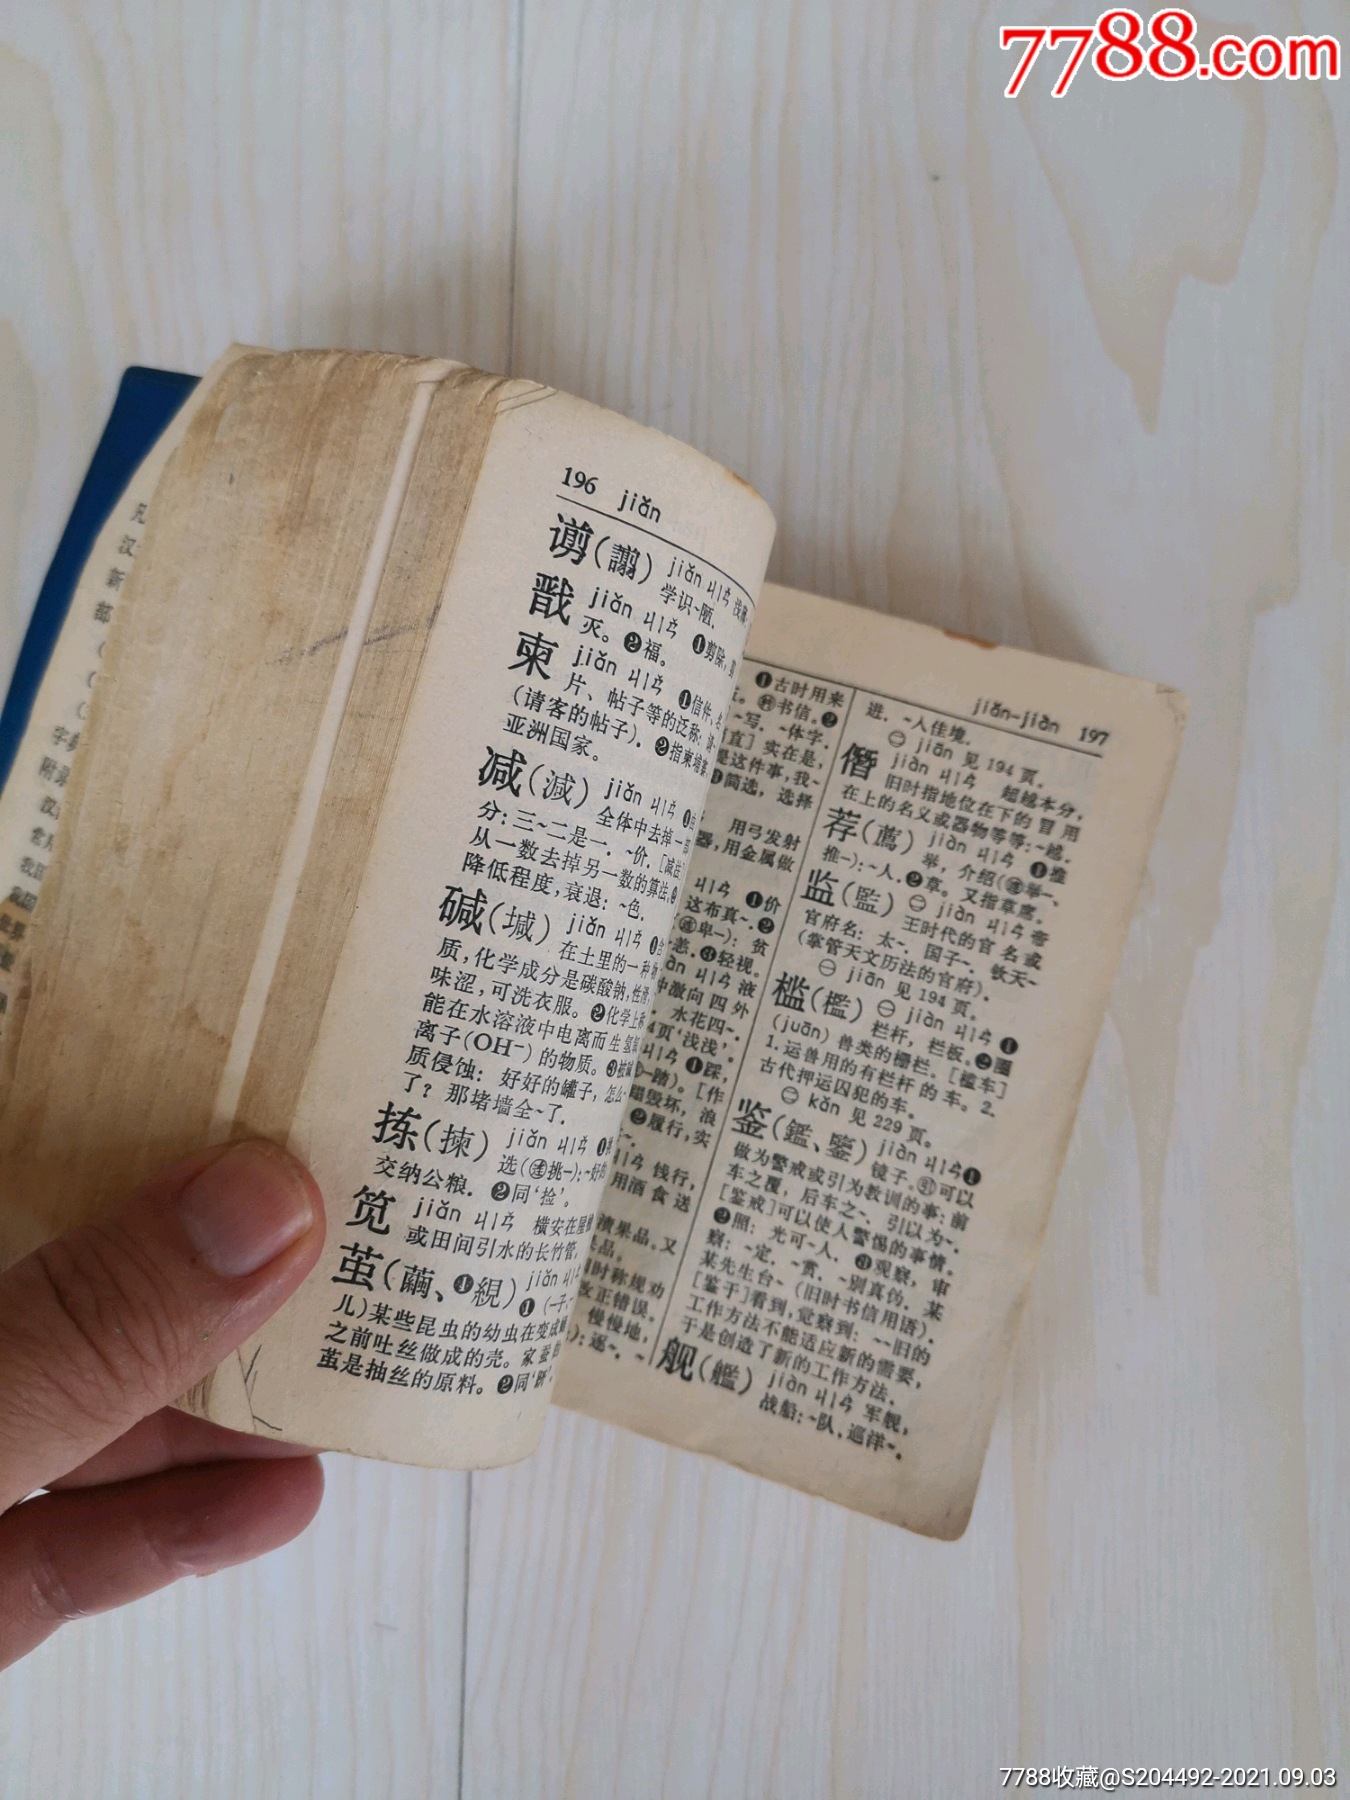 7788.com
196 jiǎn
谫(譾) jiǎn ㄐㄧㄢˇ 浅薄:
学识~陋.
戬 jiǎn ㄐㄧㄢˇ ❶剪除,
灭。❷福。
柬 jiǎn ㄐㄧㄢˇ ❶信件、名
片、帖子等的泛称: 请~
(请客的帖子). ❷指柬埔寨,
亚洲国家。
减(減) jiǎn ㄐㄧㄢˇ ❶由
全体中去掉一部
分: 三~二是一. ~价. [减法]
从一数去掉另一数的算法。❷
降低程度, 衰退: ~色.
碱(堿) jiǎn ㄐㄧㄢˇ ❶含
在土里的一种物
质, 化学成分是碳酸钠, 性滑,
味涩, 可洗衣服。❷化学上称
能在水溶液中电离而生氢氧
离子(OH⁻)的物质。❸被碱
质侵蚀: 好好的罐子, 怎么~
了? 那堵墙全~了.
拣(揀) jiǎn ㄐㄧㄢˇ ❶挑
选(㊣挑—): ~好的
交纳公粮. ❷同‘捡’。
笕 jiǎn ㄐㄧㄢˇ 横安在屋檐
或田间引水的长竹管.
茧(繭、❶絸) jiǎn ㄐㄧㄢˇ
❶(—子、—
儿)某些昆虫的幼虫在变成蛹
之前吐丝做成的壳。家蚕的
茧是抽丝的原料。❷同‘趼’.
jiǎn–jiàn 197
❶古时用来
书信。❷
~写. ~体字.
直] 实在是,
是这件事, 我~
简选, 选择
用弓发射
器, 用金属做
❶价
这布真~. ❷
卑—): 贫
❸轻视。
液
中激向四外
水花四~.
页‘浅浅’.
❶踩,
—踏)。[作
蹋毁坏, 浪
❷履行, 实
饯行,
用酒食送
渍果品. 又
品。
时称规劝
改正错误。
慢慢地,
): 逐~. ~
进. ~入佳境.
㊁ jiān 见 194 页.
僭 jiàn ㄐㄧㄢˋ 超越本分,
旧时指地位在下的冒用
在上的名义或器物等等: ~越.
荐(薦) jiàn ㄐㄧㄢˋ ❶推
举, 介绍(㊣举—、
推—): ~人. ❷草。又指草席.
监(監) ㊀ jiàn ㄐㄧㄢˋ 帝
王时代的官名或
官府名: 太~. 国子~. 钦天~
(掌管天文历法的官府).
㊁ jiān 见 194 页.
槛(檻) ㊀ jiàn ㄐㄧㄢˋ ❶
栏杆, 栏板. ❷圈
(juàn) 兽类的栅栏. [槛车]
1. 运兽用的有栏杆的车。2.
古代押运囚犯的车.
㊁ kǎn 见 229 页。
鉴(鑑、鑒) jiàn ㄐㄧㄢˋ ❶
镜子。㊅可以
做为警戒或引为教训的事: 前
车之覆, 后车之~. 引以为~.
[鉴戒]可以使人警惕的事情。
❷照: 光可~人. ❸观察, 审
察: ~定. ~赏. ~别真伪. 某
某先生台~ (旧时书信用语).
[鉴于]看到, 觉察到: ~~旧的
工作方法不能适应新的需要,
于是创造了新的工作方法.
舰(艦) jiàn ㄐㄧㄢˋ 军舰,
战船: ~队. 巡洋~.
7788收藏@S204492-2021.09.03